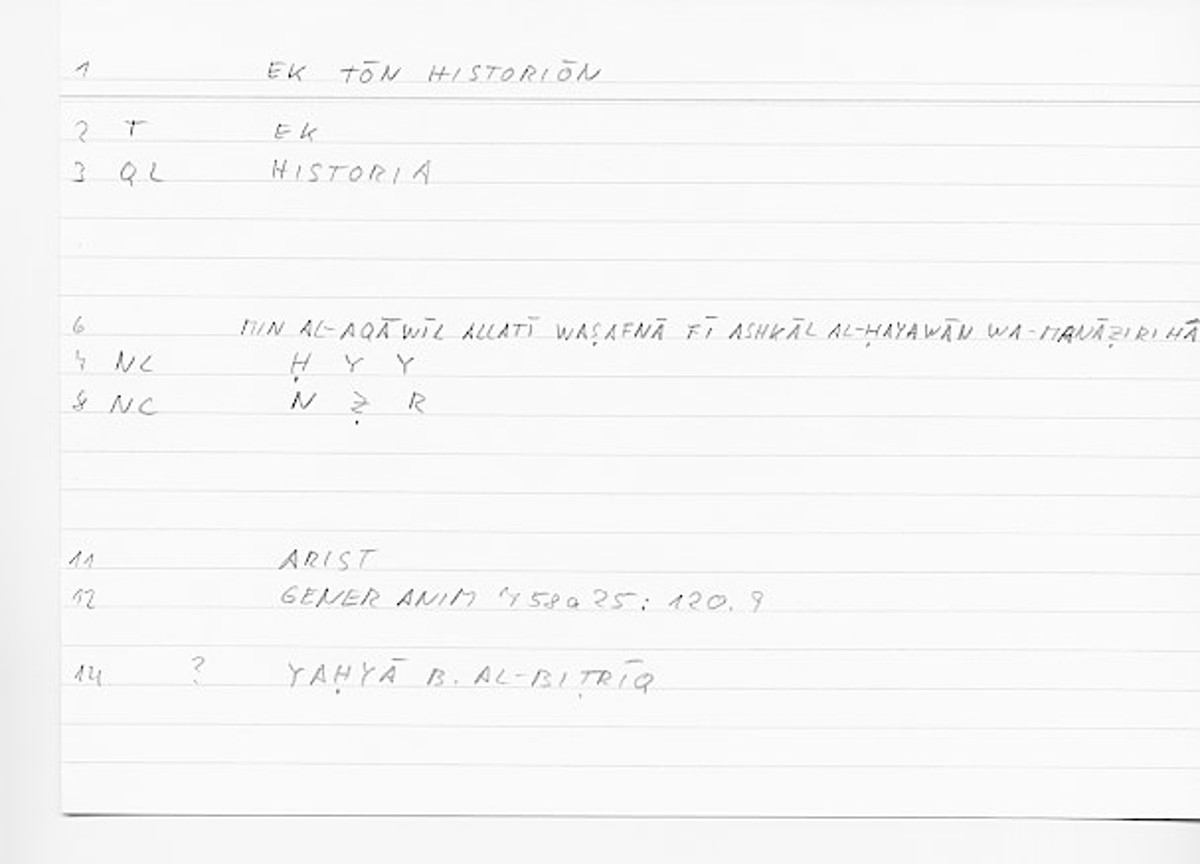 1 EK TŌN HISTORIŌN
2 T EK
3 QL HISTORIA
6 MIN AL-AQĀWĪL ALLATĪ WAṢAFNĀ FĪ ASHKĀL AL-ḤAYAWĀN WA-MANĀẒIRIHĀ
7 NC Ḥ Y Y
8 NC N Ẓ R
11 ARIST
12 GENER ANIM 758a25: 120.9
14 ? YAḤYĀ B. AL-BIṬRĪQ